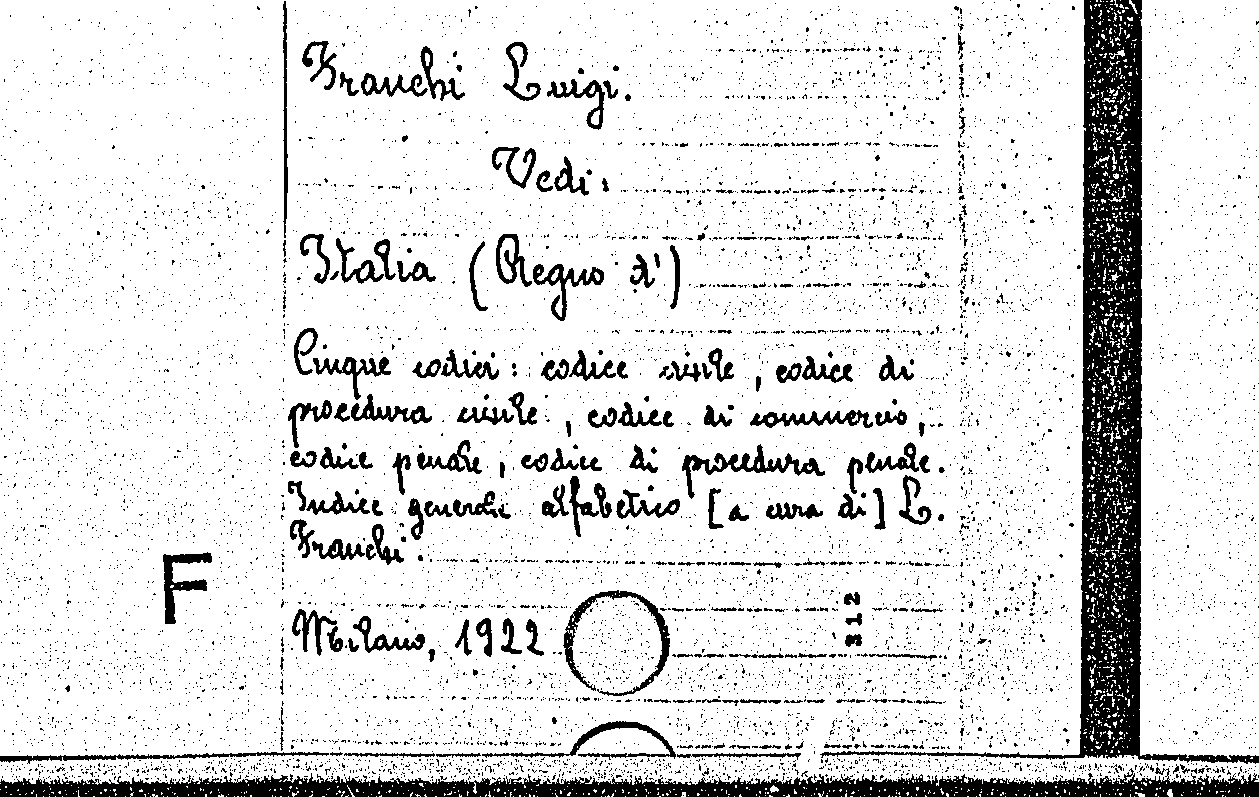 Franchi Luigi.
Vedi:
Italia (Regno d')
Cinque codici: codice civile, codice di
procedura civile, codice di commercio,
codice penale, codice di procedura penale.
Indice generale alfabetico [a cura di] L.
Franchi.
F
Milano, 1922
312